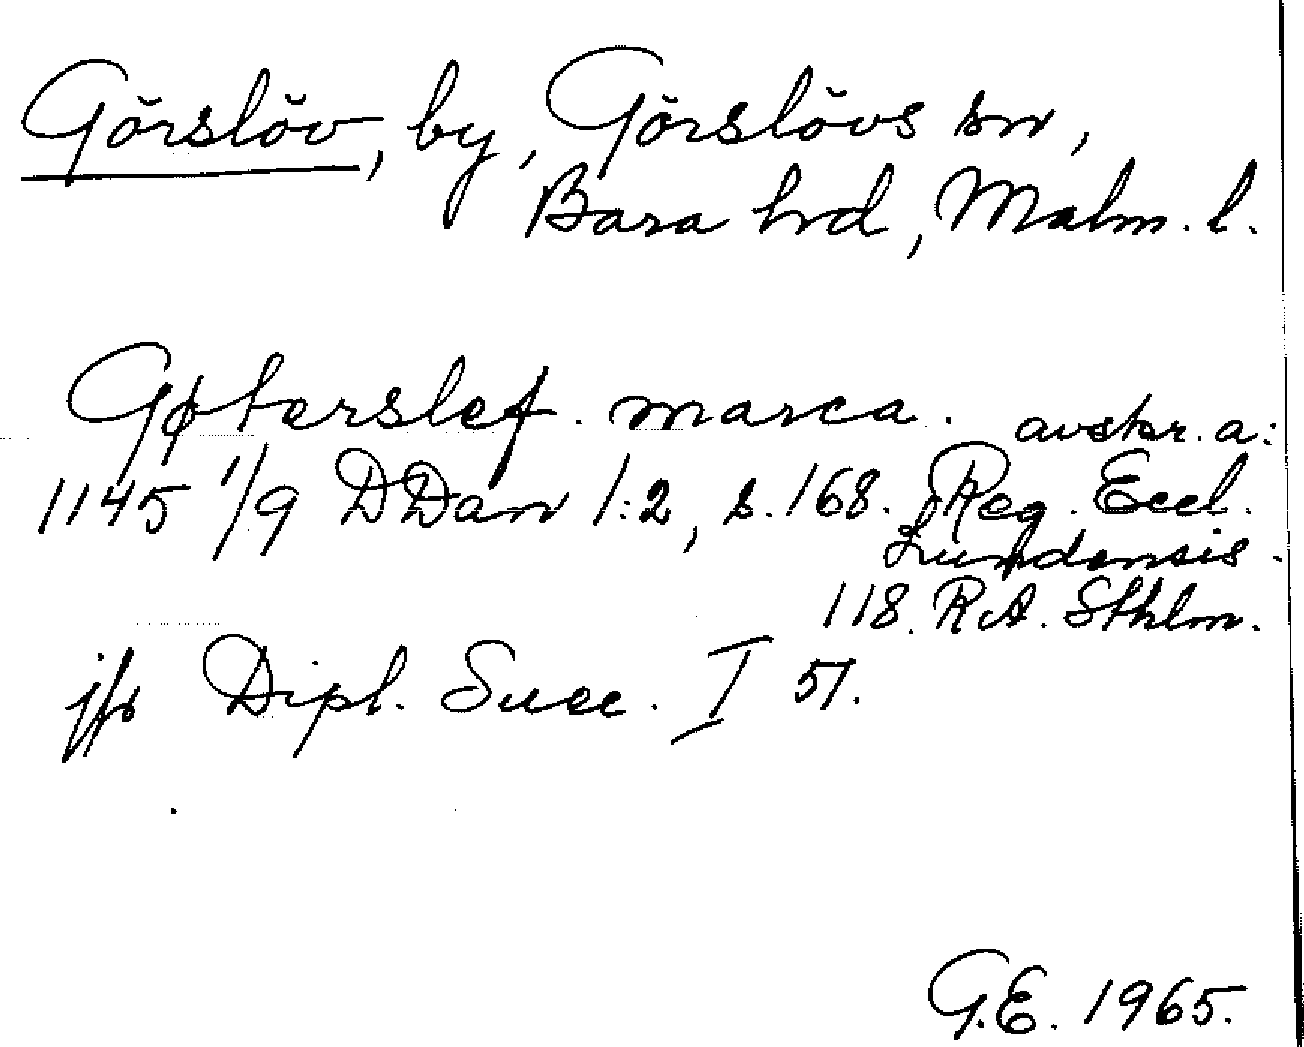 Görslöv, by, Görslövs sn,
Bara hrd, Malm. l.
Gøterslef. marca. avskr. a:
1145 1/9 DDan 1:2, s. 168. Reg. Eccl.
Lundensis.
118. RA. Sthlm.
jfr Dipl. Suec. I 57.
G.E. 1965.